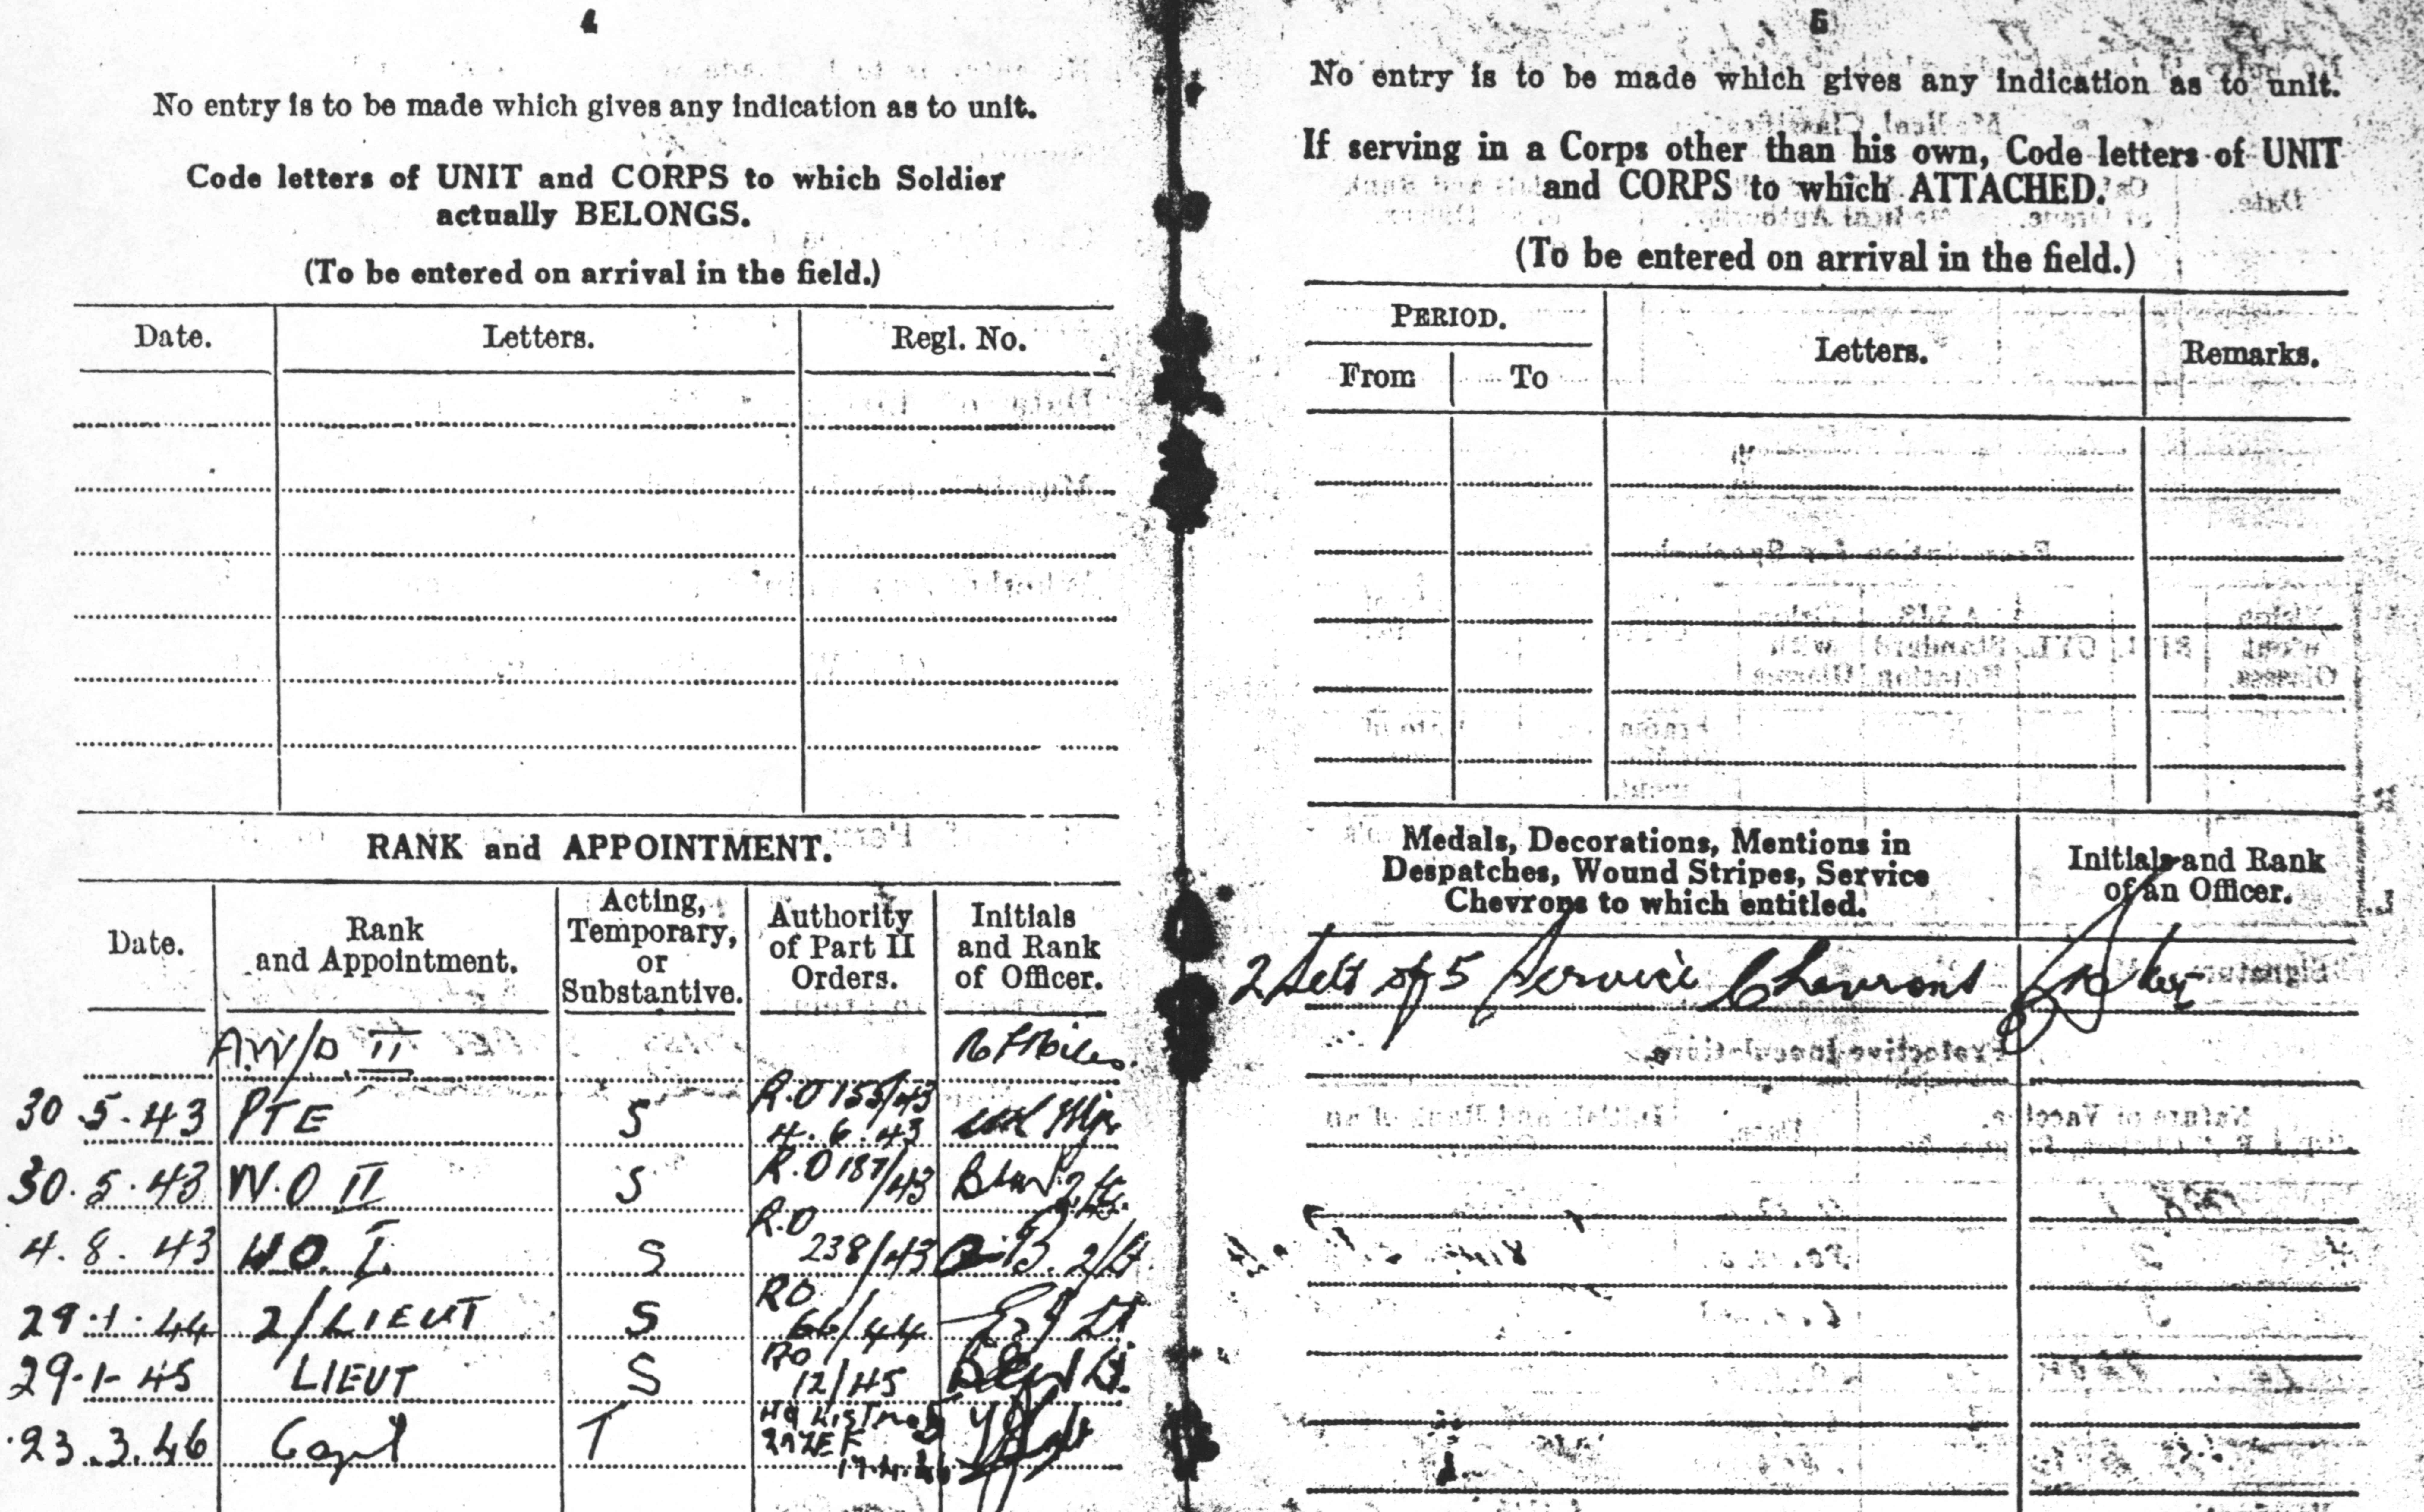 4
No entry is to be made which gives any indication as to unit.
Code letters of UNIT and CORPS to which Soldier
actually BELONGS.
(To be entered on arrival in the field.)
Date. Letters. Regl. No.
RANK and APPOINTMENT.
Date. Rank and Appointment. Acting, Temporary, or Substantive. Authority of Part II Orders. Initials and Rank of Officer.
A.W/O II
30.5.43 PTE S R.O 155/43 4.6.43
30.5.43 W.O II S R.O 187/43 2/Lt.
4.8.43 W.O. I. S R.O 238/43 2/Lt
29.1.44 2/LIEUT S RO 66/44 Lt
29.1-45 LIEUT S RO 12/45 Lt.
23.3.46 Capt T
5
No entry is to be made which gives any indication as to unit.
If serving in a Corps other than his own, Code letters of UNIT
and CORPS to which ATTACHED.
(To be entered on arrival in the field.)
PERIOD. Letters. Remarks.
From To
Medals, Decorations, Mentions in
Despatches, Wound Stripes, Service
Chevrons to which entitled.
Initials and Rank
of an Officer.
2 Sets of 5 Service Chevrons